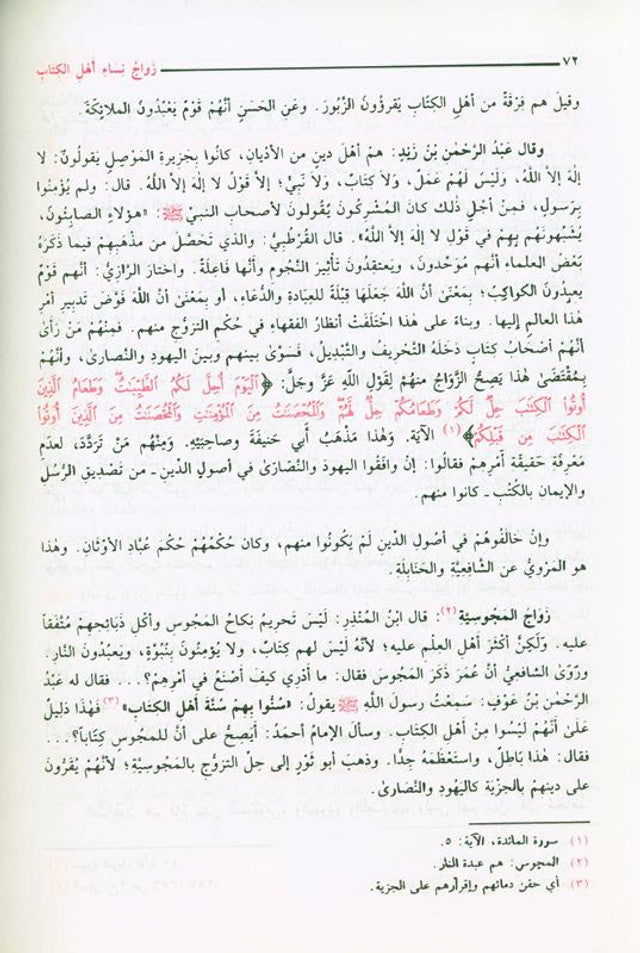 ٧٢ زَوَاجُ نِسَاءِ أَهْلِ الكِتَابِ
وقيلَ هم فِرْقَةٌ من أهلِ الكِتَابِ يَقرؤونَ الزَّبُورَ. وعَنِ الحَسَنِ أنَّهُمْ قَوْمٌ يَعْبُدُونَ الملائِكَةَ.
وقال عَبْدُ الرَّحْمٰنِ بْنُ زَيْدٍ: هم أهْلُ دينٍ من الأدْيَانِ، كانُوا بجَزِيرةِ المَوْصِلِ يَقولُونَ: لا
إلٰهَ إلاَّ اللَّهُ، وَلَيْسَ لَهُمْ عَمَلٌ، وَلاَ كِتَابٌ، وَلاَ نَبِيٌّ؛ إلاَّ قَوْلُ لا إلٰهَ إلاَّ اللَّهُ. قال: ولم يُؤْمِنُوا
بِرَسولٍ، فمِنْ أجْلِ ذٰلك كانَ المُشْرِكُونَ يَقُولونَ لأصحابِ النبيِّ ﷺ: «هؤلاءِ الصابِئُونَ،
يُشَبِّهُونَهُم بِهِمْ في قَوْلِ لا إلٰهَ إلاَّ اللَّهُ». قال القُرْطُبِيُّ: والذي تَحَصَّلَ من مذْهَبِهِمْ فيما ذكَرَهُ
بَعْضُ العلماءِ أنَّهم مُوَحِّدُونَ، ويَعتقِدُونَ تَأْثِيرَ النُّجُومِ وأنَّها فَاعِلَةٌ. واختارَ الرازِيُّ: أنَّهم قَوْمٌ
يعبدُونَ الكواكِبَ؛ بمَعْنَى أنَّ اللَّهَ جَعَلَهَا قِبْلَةً للعِبَادةِ والدُّعَاءِ، أو بِمَعْنَىٰ أنَّ اللَّهَ فَوَّضَ تدبِيرَ أمْرِ
هٰذا العالمِ إليها. وبناءً على هٰذا اخْتَلَفَتْ أنظارُ الفقهاءِ في حُكْمِ التزَوُّجِ منهم. فمِنْهُمْ مَنْ رَأىٰ
أنَّهُمْ أصْحَابُ كتابٍ دَخَلَهُ التَّحْريفُ والتَّبْديلُ، فَسَوَّىٰ بينهم وبينَ اليهودِ والنَّصارىٰ، وأنَّهُمْ
بِمُقْتَضَىٰ هٰذا يَصِحُّ الزَّوَاجُ منهُمْ لِقَوْلِ اللَّهِ عَزَّ وجَلَّ: ﴿اَلْيَوْمَ أُحِلَّ لَكُمُ الطَّيِّبَٰتُ وَطَعَامُ الَّذِينَ
أُوتُوا الْكِتَٰبَ حِلٌّ لَكُمْ وَطَعَامُكُمْ حِلٌّ لَهُمْ وَالْمُحْصَنَٰتُ مِنَ الْمُؤْمِنَٰتِ وَالْمُحْصَنَٰتُ مِنَ الَّذِينَ أُوتُوا
الْكِتَٰبَ مِن قَبْلِكُمْ﴾(١) الآيَةَ. وَهٰذا مَذْهَبُ أبي حَنِيفَةَ وصاحِبَيْهِ. وَمِنْهُم مَنْ تَرَدَّدَ، لعدَمِ
مَعْرِفَةِ حَقِيقَةِ أمْرِهِمْ فقالُوا: إنْ وافَقُوا اليهودَ والنَّصَارَىٰ في أصولِ الدِّينِ - من تَصْدِيقِ الرُّسُلِ
والإيمانِ بالكُتُبِ - كانوا منهم.
وإنْ خالَفُوهُمْ في أصُولِ الدِّينِ لَمْ يَكُونُوا منهم، وكان حُكْمُهُمْ حُكْمَ عُبَّادِ الأوْثَانِ. وهٰذا
هو المَرْوِيُّ عن الشَّافِعِيَّةِ والحَنَابِلَةِ.
زَوَاجُ المَجُوسيَّةِ(٢): قال ابْنُ المُنْذِرِ: لَيْسَ تَحْرِيمُ نِكاحِ المَجُوسِ وأكْلِ ذَبائِحِهِمْ مُتَّفَقاً
عليه. ولَكِنَّ أكْثَرَ أهْلِ العِلْمِ عليه؛ لأنَّهُ لَيْسَ لهم كِتَابٌ، ولا يُؤْمِنُونَ بِنُبُوَّةٍ، ويَعبُدُونَ النَّارَ.
ورَوَىٰ الشافعيُّ أنَّ عُمَرَ ذَكَرَ المَجُوسَ فقال: ما أدْرِي كيفَ أصْنَعُ في أمْرِهِمْ؟... فقال له عَبْدُ
الرَّحْمٰنِ بْنُ عَوْفٍ: سَمِعْتُ رسولَ اللَّهِ ﷺ يقولُ: «سُنُّوا بِهِمْ سُنَّةَ أهْلِ الكِتَابِ»(٣) فَهٰذا دَلِيلٌ
عَلَىٰ أنَّهُمْ لَيْسُوا مِنْ أهْلِ الكِتَابِ. وسألَ الإمامُ أحمدُ: أيَصِحُّ على أنَّ للمَجُوسِ كِتَاباً؟...
فقالَ: هٰذا بَاطِلٌ، واستَعْظَمَهُ جِدًّا. وذهَبَ أبو ثَوْرٍ إلى حِلِّ التزوُّجِ بالمَجُوسِيَّةِ؛ لأنَّهُمْ يُقَرُّونَ
على دينِهِمْ بالجِزْيَةِ كاليَهُودِ والنَّصَارَىٰ.
(١) سورة المائدة، الآية: ٥.
(٢) المجوسي: هم عبدة النار.
(٣) أي حقن دمائهم وإقرارهم على الجزية.